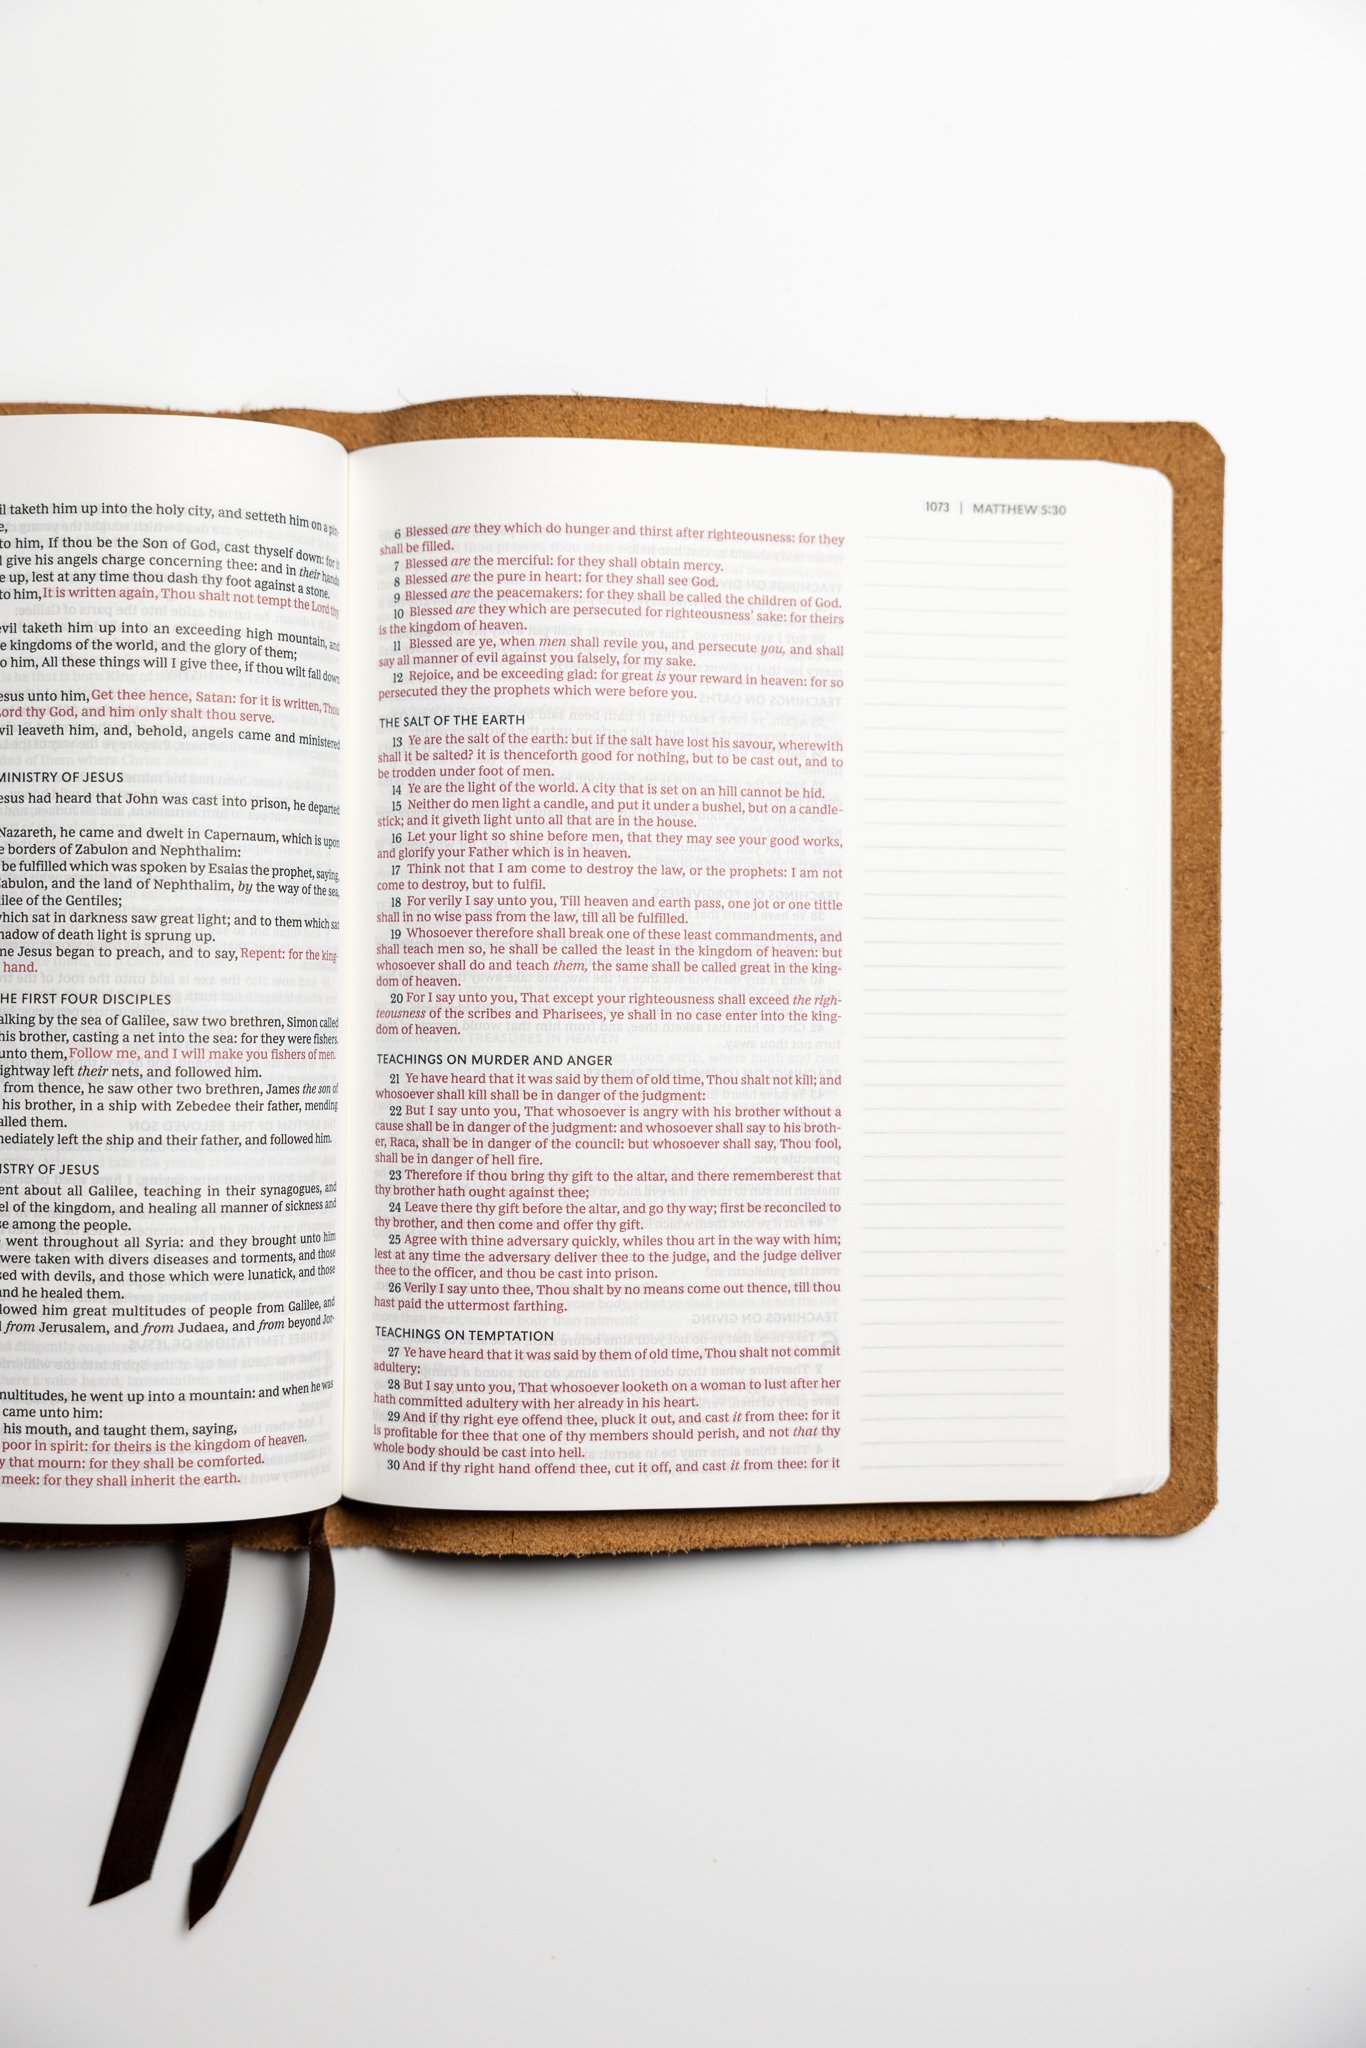 taketh him up into the holy city, and setteth him on a pin-
to him, If thou be the Son of God, cast thyself down: for it
give his angels charge concerning thee: and in their hands
up, lest at any time thou dash thy foot against a stone.
to him, It is written again, Thou shalt not tempt the Lord thy
taketh him up into an exceeding high mountain, and
kingdoms of the world, and the glory of them;
him, All these things will I give thee, if thou wilt fall down
unto him, Get thee hence, Satan: for it is written, Thou
thy God, and him only shalt thou serve.
leaveth him, and, behold, angels came and ministered
MINISTRY OF JESUS
had heard that John was cast into prison, he departed
Nazareth, he came and dwelt in Capernaum, which is upon
borders of Zabulon and Nephthalim:
be fulfilled which was spoken by Esaias the prophet, saying,
and the land of Nephthalim, by the way of the sea,
of the Gentiles;
which sat in darkness saw great light; and to them which sat
of death light is sprung up.
Jesus began to preach, and to say, Repent: for the king-
hand.
THE FIRST FOUR DISCIPLES
by the sea of Galilee, saw two brethren, Simon called
his brother, casting a net into the sea: for they were fishers.
unto them, Follow me, and I will make you fishers of men.
left their nets, and followed him.
from thence, he saw other two brethren, James the son of
his brother, in a ship with Zebedee their father, mending
them.
left the ship and their father, and followed him.
OF JESUS
about all Galilee, teaching in their synagogues, and
of the kingdom, and healing all manner of sickness and
among the people.
went throughout all Syria: and they brought unto him
were taken with divers diseases and torments, and those
with devils, and those which were lunatick, and those
and he healed them.
him great multitudes of people from Galilee, and
from Jerusalem, and from Judaea, and from beyond Jor-
multitudes, he went up into a mountain: and when he was
came unto him:
his mouth, and taught them, saying,
poor in spirit: for theirs is the kingdom of heaven.
that mourn: for they shall be comforted.
meek: for they shall inherit the earth.
1073 | MATTHEW 5:30
6 Blessed are they which do hunger and thirst after righteousness: for they
shall be filled.
7 Blessed are the merciful: for they shall obtain mercy.
8 Blessed are the pure in heart: for they shall see God.
9 Blessed are the peacemakers: for they shall be called the children of God.
10 Blessed are they which are persecuted for righteousness' sake: for theirs
is the kingdom of heaven.
11 Blessed are ye, when men shall revile you, and persecute you, and shall
say all manner of evil against you falsely, for my sake.
12 Rejoice, and be exceeding glad: for great is your reward in heaven: for so
persecuted they the prophets which were before you.
THE SALT OF THE EARTH
13 Ye are the salt of the earth: but if the salt have lost his savour, wherewith
shall it be salted? it is thenceforth good for nothing, but to be cast out, and to
be trodden under foot of men.
14 Ye are the light of the world. A city that is set on an hill cannot be hid.
15 Neither do men light a candle, and put it under a bushel, but on a candle-
stick; and it giveth light unto all that are in the house.
16 Let your light so shine before men, that they may see your good works,
and glorify your Father which is in heaven.
17 Think not that I am come to destroy the law, or the prophets: I am not
come to destroy, but to fulfil.
18 For verily I say unto you, Till heaven and earth pass, one jot or one tittle
shall in no wise pass from the law, till all be fulfilled.
19 Whosoever therefore shall break one of these least commandments, and
shall teach men so, he shall be called the least in the kingdom of heaven: but
whosoever shall do and teach them, the same shall be called great in the king-
dom of heaven.
20 For I say unto you, That except your righteousness shall exceed the righ-
teousness of the scribes and Pharisees, ye shall in no case enter into the king-
dom of heaven.
TEACHINGS ON MURDER AND ANGER
21 Ye have heard that it was said by them of old time, Thou shalt not kill; and
whosoever shall kill shall be in danger of the judgment:
22 But I say unto you, That whosoever is angry with his brother without a
cause shall be in danger of the judgment: and whosoever shall say to his broth-
er, Raca, shall be in danger of the council: but whosoever shall say, Thou fool,
shall be in danger of hell fire.
23 Therefore if thou bring thy gift to the altar, and there rememberest that
thy brother hath ought against thee;
24 Leave there thy gift before the altar, and go thy way; first be reconciled to
thy brother, and then come and offer thy gift.
25 Agree with thine adversary quickly, whiles thou art in the way with him;
lest at any time the adversary deliver thee to the judge, and the judge deliver
thee to the officer, and thou be cast into prison.
26 Verily I say unto thee, Thou shalt by no means come out thence, till thou
hast paid the uttermost farthing.
TEACHINGS ON TEMPTATION
27 Ye have heard that it was said by them of old time, Thou shalt not commit
adultery:
28 But I say unto you, That whosoever looketh on a woman to lust after her
hath committed adultery with her already in his heart.
29 And if thy right eye offend thee, pluck it out, and cast it from thee: for it
is profitable for thee that one of thy members should perish, and not that thy
whole body should be cast into hell.
30 And if thy right hand offend thee, cut it off, and cast it from thee: for it